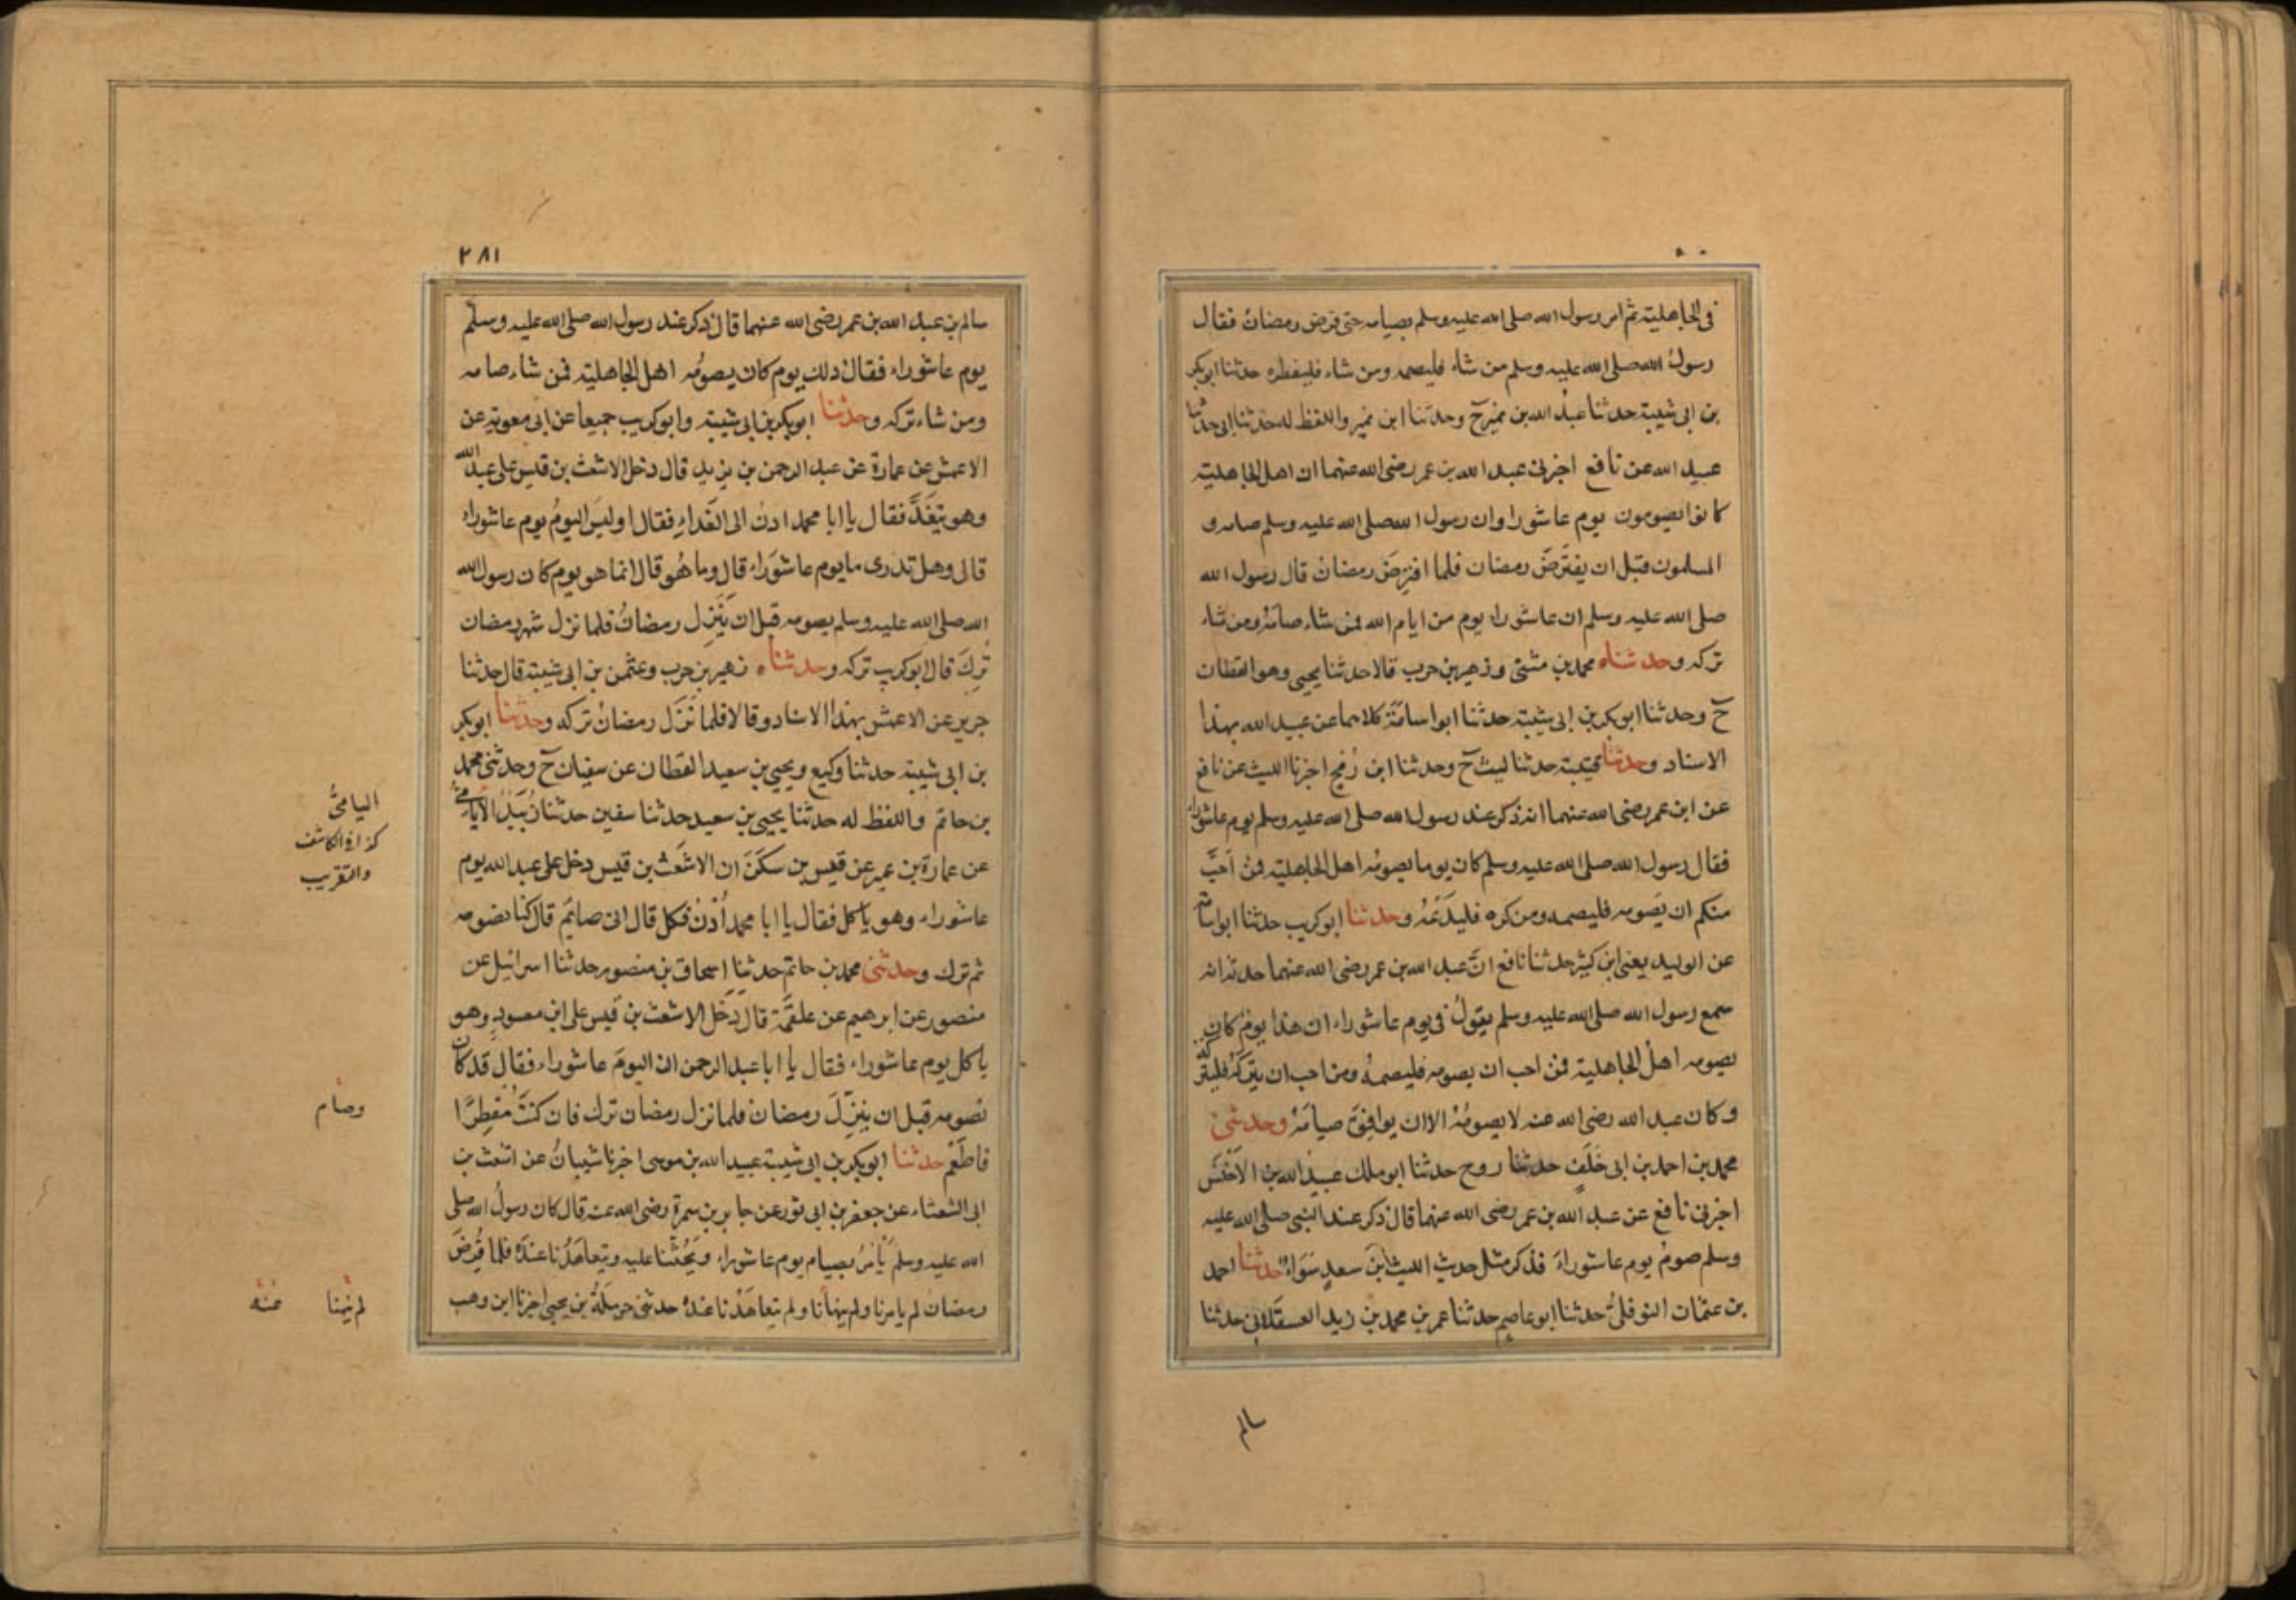 فى الجاهلية ثم امر رسول الله صلى الله عليه وسلم بصيامه حتى فرض رمضانُ فقال
رسولُ الله صلى الله عليه وسلم من شاء فليصمه ومن شاء فليفطره حدثنا ابوبكر
بن ابى شيبة حدثنا عبدُ الله بن نمير ح وحدثنا ابن نمير واللفظ له حدثنا ابى حدثنا
عبيد الله عن نافع اخبرنى عبد الله بن عمر رضى الله عنهما ان اهل الجاهلية
كانوا يصومون يوم عاشورا وان رسول الله صلى الله عليه وسلم صامه و
المسلمون قبل ان يفتَرضَ رمضان فلما افتُرِضَ رمضانُ قال رسول الله
صلى الله عليه وسلم ان عاشورا يوم من ايام الله فمن شاء صامَهُ ومن شاء
تركه وحدثناه محمد بن مثنى وزهير بن حرب قالا حدثنا يحيى وهو القطان
ح وحدثنا ابوبكر بن ابى شيبة حدثنا ابو اسامَةَ كلاهما عن عبيد الله بهذا
الاسناد وحدثنا قتيبة حدثنا ليث ح وحدثنا ابن رُمح اخبرنا الليث عن نافع
عن ابن عمر رضى الله عنهما انه ذكر عند رسول الله صلى الله عليه وسلم يوم عاشوراء
فقال رسول الله صلى الله عليه وسلم كان يوما يصومُه اهل الجاهلية فمن اَحَبَّ
منكم ان يَصومه فليصمه ومن كره فليدَعْهُ وحدثنا ابوكريب حدثنا ابو اسامة
عن الوليد يعنى ابن كثير حدثنا نافع انَّ عبد الله بن عمر رضى الله عنهما حدثه انه
سمع رسول الله صلى الله عليه وسلم يقولُ فى يوم عاشوراء ان هذا يومٌ كان
يصومه اهلُ الجاهلية فمن احب ان يصومه فليصمهُ ومن احب ان يتركهُ فليتركه
وكان عبد الله رضى الله عنه لا يصومُهُ الا ان يوافِقَ صيامَهُ وحدثنى
محمد بن احمد بن ابى خَلَفٍ حدثنا روح حدثنا ابو ملك عبيدُ الله بن الاَخْنَسَ
اخبرنى نافع عن عبد الله بن عمر رضى الله عنهما قال ذكر عند النبى صلى الله عليه
وسلم صومُ يوم عاشوراءَ فذكر مثل حديث الليث ابن سعدٍ سَوَاءً حدثنا احمد
بن عثمان النوفلىُّ حدثنا ابو عاصم حدثنا عمر بن محمد بن زيد العسقَلانى حدثنا
سالم
٢٨١
سالم بن عبد الله بن عمر رضى الله عنهما قال ذكر عند رسول الله صلى الله عليه وسلم
يوم عاشوراء فقال ذلك يوم كان يصومُه اهل الجاهلية فمن شاء صامه
ومن شاء تركه وحدثنا ابوبكر بن ابى شيبة وابوكريب جميعا عن ابى معوية عن
الاعمش عن عمارة عن عبد الرحمن بن يزيد قال دخل الاشعث بن قيس على عبد الله
وهو يَتَغَدَّ فقال يا ابا محمد ادنُ الى الغَداءِ فقال اوليسَ اليومُ يوم عاشوراء
قال وهل تدرى ما يوم عاشوَراء قال وما هُو قال انما هو يوم كان رسول الله
الله صلى الله عليه وسلم يصومه قبل ان يَنْزِل رمضانُ فلما نزل شهر رمضان
تُرِكَ قال ابوكريب تركه وحدثناه زهير بن حرب وعثمن بن ابى شيبة قال حدثنا
جرير عن الاعمش بهذا الاسناد وقالا فلما نَزَل رمضانُ تركه وحدثنا ابوبكر
بن ابى شيبة حدثنا وكيع ويحيى بن سعيد القطان عن سفيان ح وحدثنى محمد
بن حاتم واللفظ له حدثنا يحيى بن سعيد حدثنا سفين حدثنا زُبَيْدُ الاَيامىُّ
عن عمارة بن عمير عن قيس بن سكَنَ ان الاشعَث بن قيس دخل على عبد الله يوم
عاشوراء وهو ياكل فقال يا ابا محمد اُدْنُ فكل قال انى صايم قال كنا نصومه
ثم ترك وحدثنى محمد بن حاتم حدثنا اسحاق بن منصور حدثنا اسرائيل عن
منصور عن ابرهيم عن علقمَة قال دَخَل الاشعث بن قيس على ابن مسعودٍ وهو
ياكل يوم عاشوراء فقال يا ابا عبد الرحمن ان اليومَ عاشوراء فقال قد كان
نصومه قبل ان ينزِلَ رمضان فلما نزل رمضان ترك فان كنتَ مُفطِرًا
فاطعَمْ حدثنا ابوبكر بن ابى شيبة عبيد الله بن موسى اخبرنا شيبانُ عن اشعث بن
ابى الشعثاء عن جعفر بن ابى ثور عن جابر بن سمرة رضى الله عنه قال كان رسولُ الله صلى
الله عليه وسلم يَأمُرُ بصيام يوم عاشوراء ويَحُثُّنا عليه ويتعاهَدُنا عندَهُ فلما فُرِضَ
رمضانُ لم يامرنا ولم ينهانا ولم يتعاهَدْنا عندهُ حدثنى حرملَةُ بن يحيى اخبرنا ابن وهب
اليامىُّ
كذا فى الكاشف
والتقريب
وصام
عنه